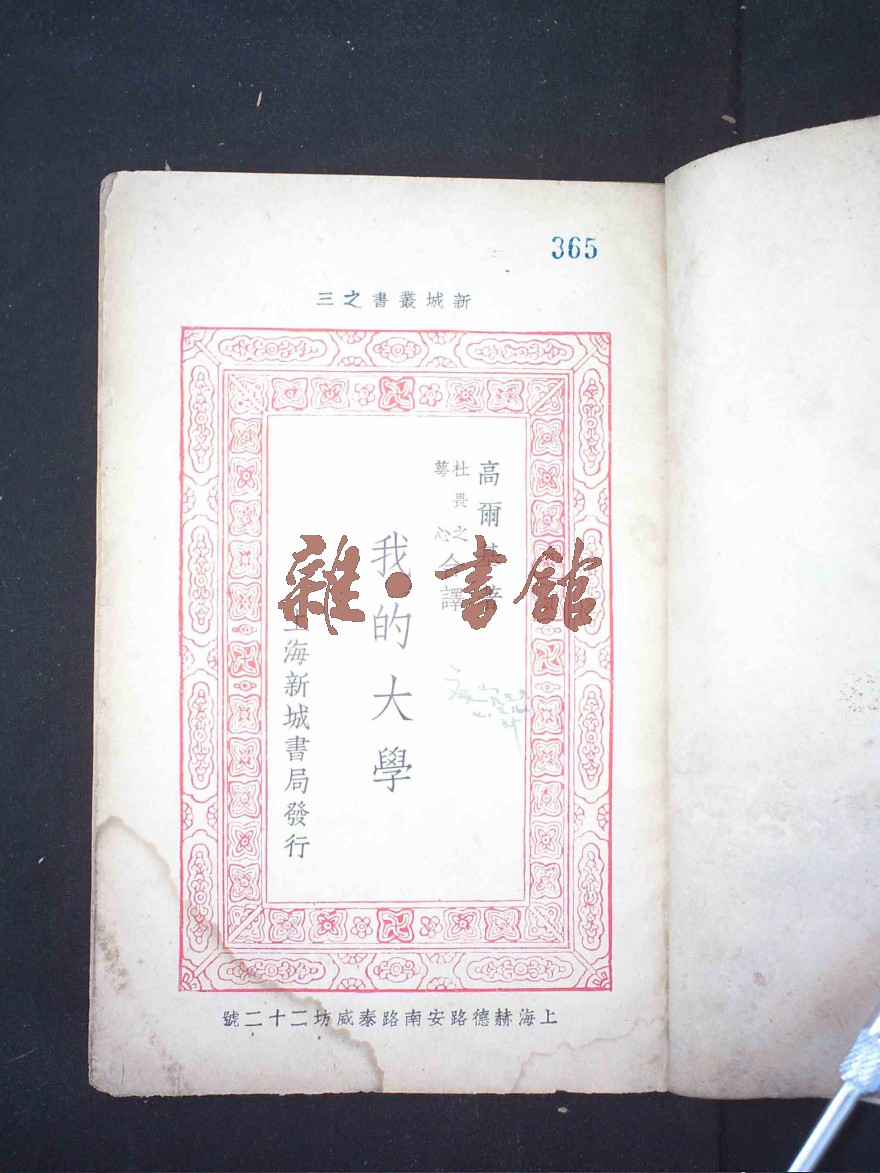 365
新城叢書之三
高爾基著
杜畏之
蕚心
合譯
我的大學
上海新城書局發行
上海赫德路安南路泰威坊二十二號
雜·書館